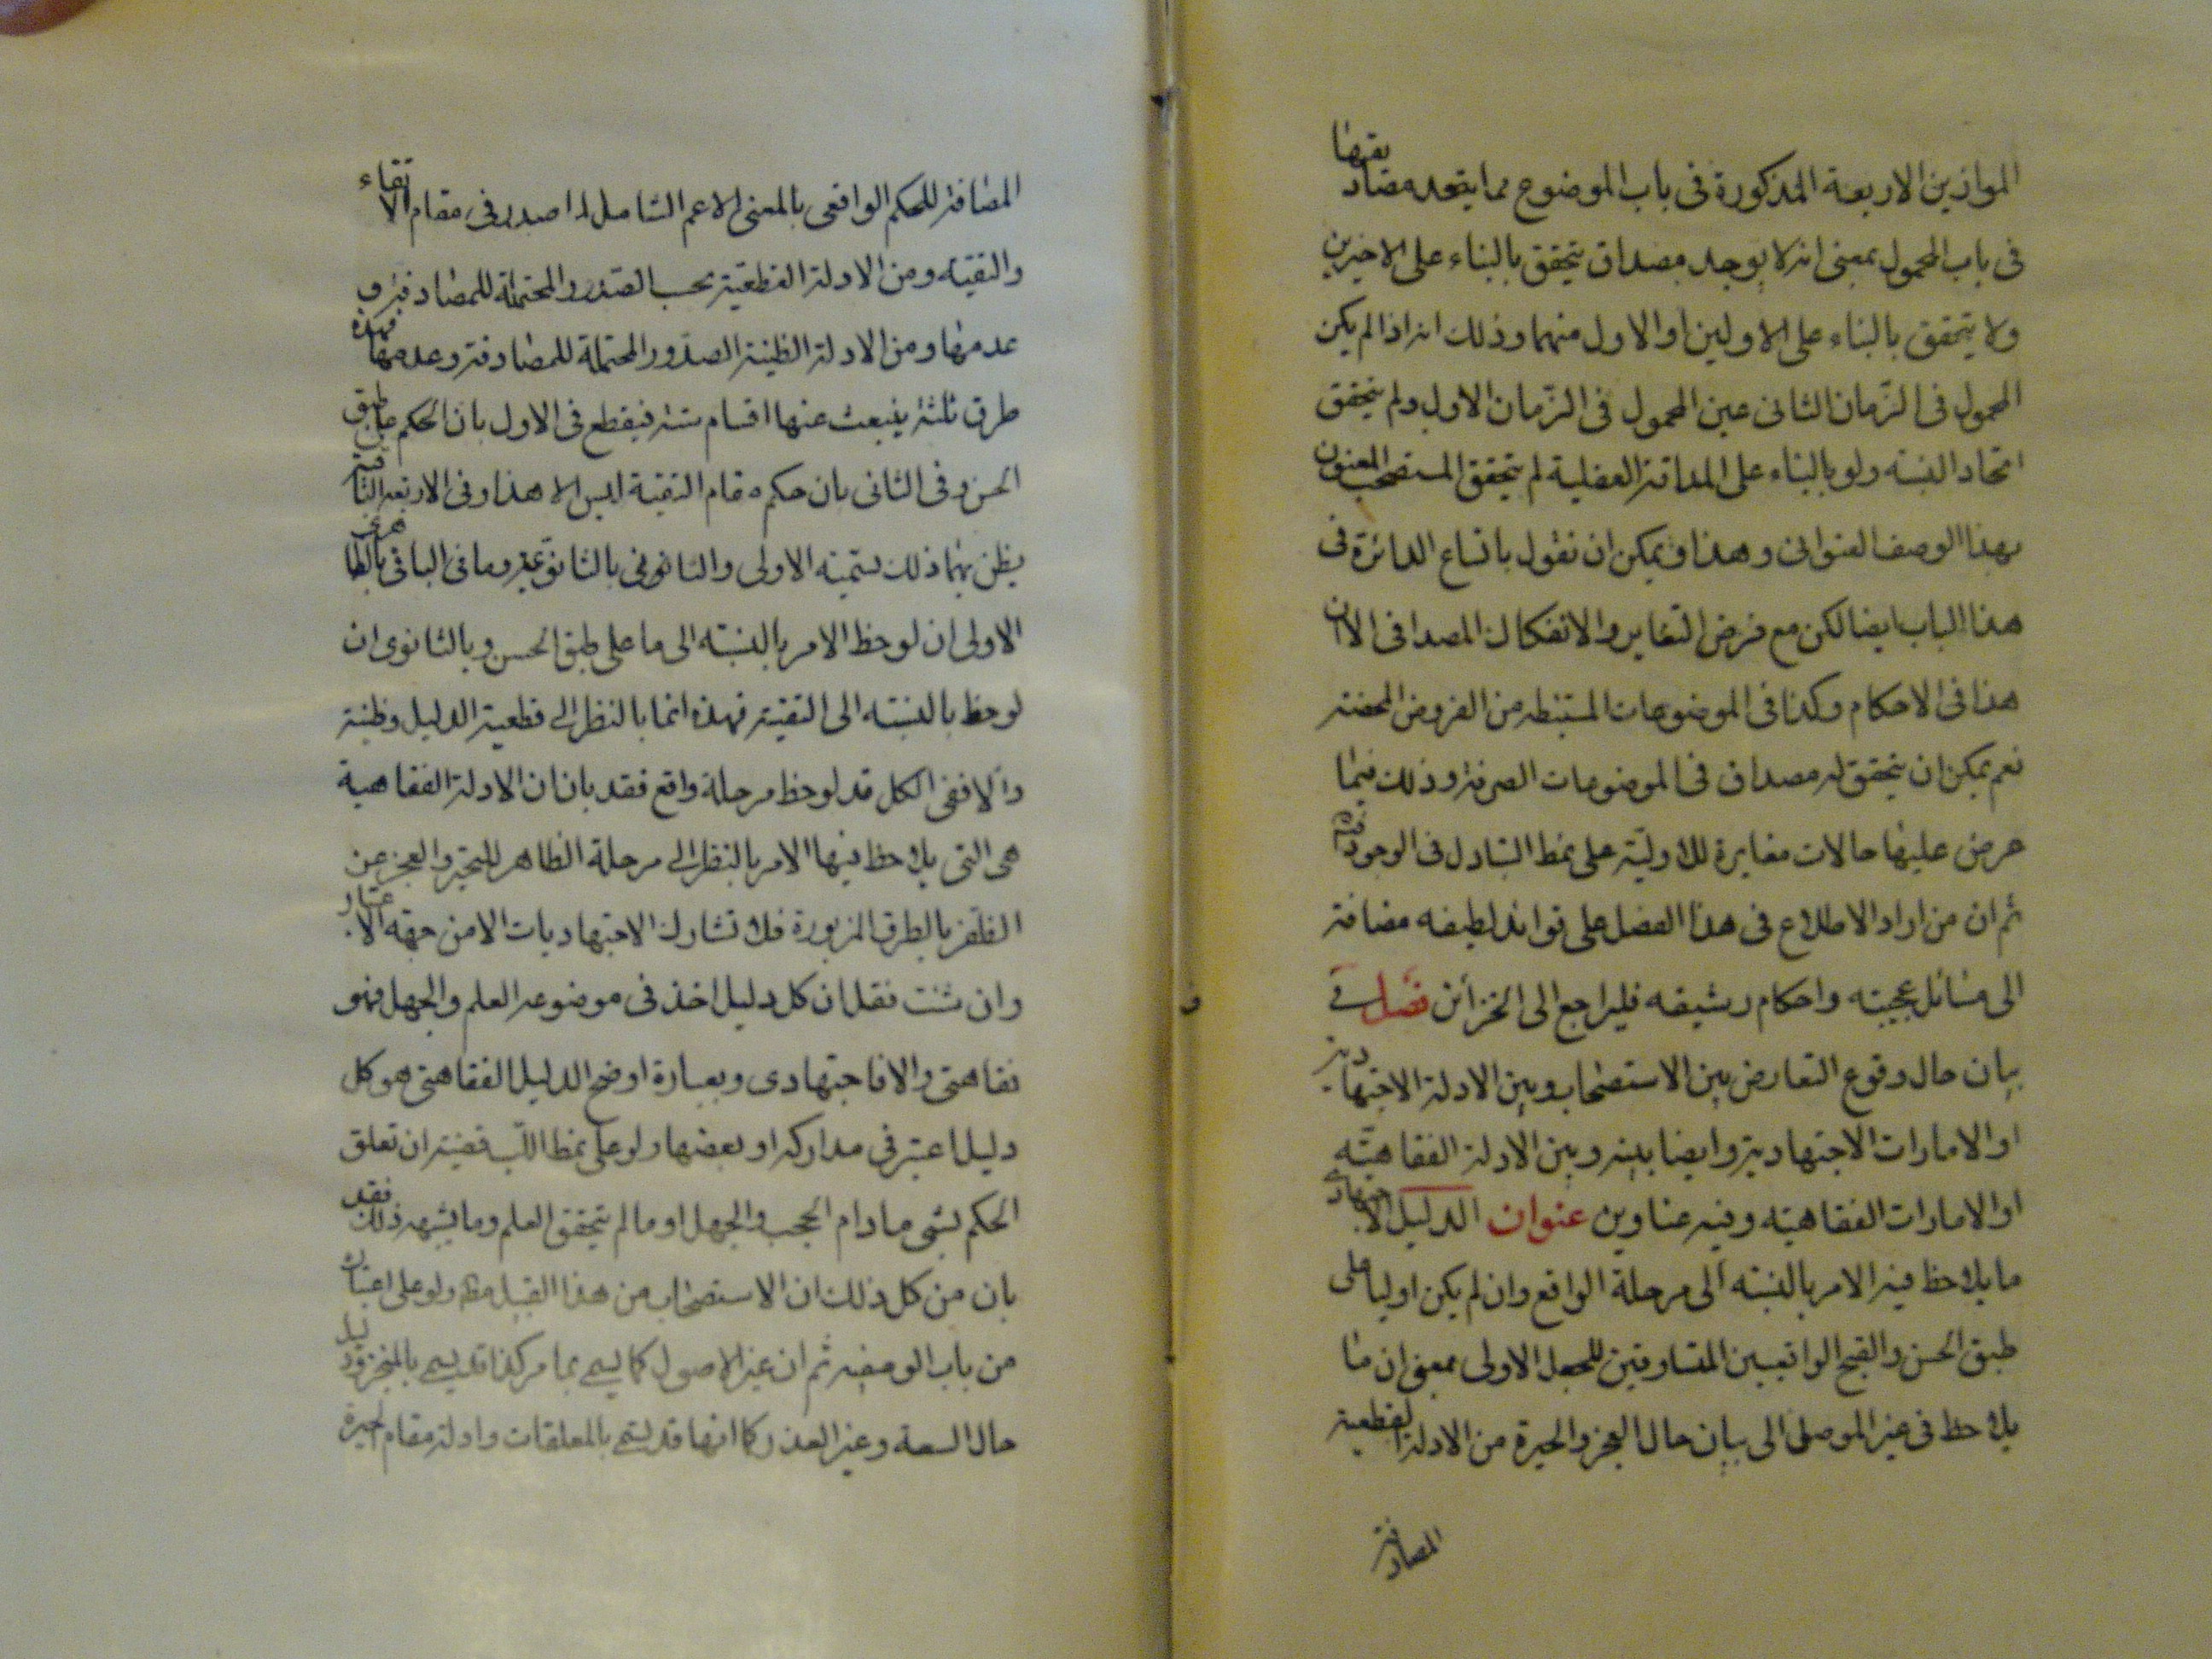 الموازين الاربعة المذكورة فى باب الموضوع مما يتحد مصاديقها
فى باب المحمول بمعنى انه لا يوجد مصداق يتحقق بالبناء على الاخيرين
ولا يتحقق بالبناء على الاولين او الاول منهما وذلك انه اذا لم يكن
المحمول فى الزمان الثانى عين المحمول فى الزمان الاول ولم يتحقق
اتحاد النسبة ولو بالبناء على المداقة العقلية لم يتحقق المستصحب المعنون
بهذا الوصف العنوانى وهذا ويمكن ان نقول باتساع الدائرة فى
هذا الباب ايضا لكن مع فرض التغاير والانفكاك المصداقى الا ان
هذا فى الاحكام وكذا فى الموضوعات المستنبطه من الفروض المحضة
نعم يمكن ان يتحقق له مصداق فى الموضوعات الصرفة وذلك فيما
عرض عليها حالات مغايرة للاولية على نمط التبادل فى الوجود
ثم ان من اراد الاطلاع فى هذا الفصل على فوائد لطيفه مضافة
الى مسائل عجيبه واحكام رشيقه فليراجع الى الخزائن فصل فى
بيان حال وقوع التعارض بين الاستصحاب وبين الادلة الاجتهادية
او الامارات الاجتهادية وايضا بينه وبين الادلة الفقاهتيه
او الامارات الفقاهتيه وفيه عناوين عنوان الدليل الاجتهادى
ما يلاحظ فيه الامر بالنسبه الى مرحلة الواقع وان لم يكن اوليا على
طبق الحسن والقبح الواقعيين المتساوقين للجعل الاولى بمعنى ان ما
يلاحظ فى غير الموصل الى بيان حال العجز والحيرة من الادلة القطعية
المصادفة
المصادفة للحكم الواقعى بالمعنى الاعم الشامل لما صدر فى مقام الاتقاء
والتقيه ومن الادلة القطعية بحسب الصدور والمحتملة للمصادفة و
عدمها ومن الادلة الظنية الصدور المحتملة للمصادفة وعدمها فهذه
طرق ثلثة ينبعث عنها اقسام ستة فيقطع فى الاول بان الحكم على طبق
الحسن وفى الثانى بان حكم مقام التقية ليس الا هذا وفى الاربعة
يظن بهما ذلك تسمية الاولى والثانوى بالثانوى وما فى الباقى
الاولى ان لوحظ الامر بالنسبه الى ما على طبق الحسن وبالثانوى ان
لوحظ بالنسبه الى التقية فهذه انما بالنظر الى قطعية الدليل وظنية
والا ففى الكل قد لوحظ مرحلة واقع فقد بان ان الادلة الفقاهية
هى التى يلاحظ فيها الامر بالنظر الى مرحلة الظاهر للتحير والعجز عن
الظفر بالطرق المزبورة فلا تشارك الاجتهاديات الا من جهه الاعتبار
وان شئت فقل ان كل دليل اخذ فى موضوعه العلم والجهل فهو
فقاهتى والا فاجتهادى وبعبارة اوضح الدليل الفقاهتى هو كل
دليل اعتبر فى مداركه او بعضها ولو على نمط اللب قضية ان تعلق
الحكم بشى ما دام الحجب والجهل او ما لم يتحقق العلم وما يشبه ذلك فقد
بان من كل ذلك ان الاستصحاب من هذا القبيل مط ولو على اعتباره
من باب الوصفيه ثم ان غير الاصول كما يسمى بما مر كذا قد يسمى بالمنجز ودليل
حال السعة وغير العذر كما انها قد تسمى بالمعلقات وادلة مقام الحيرة